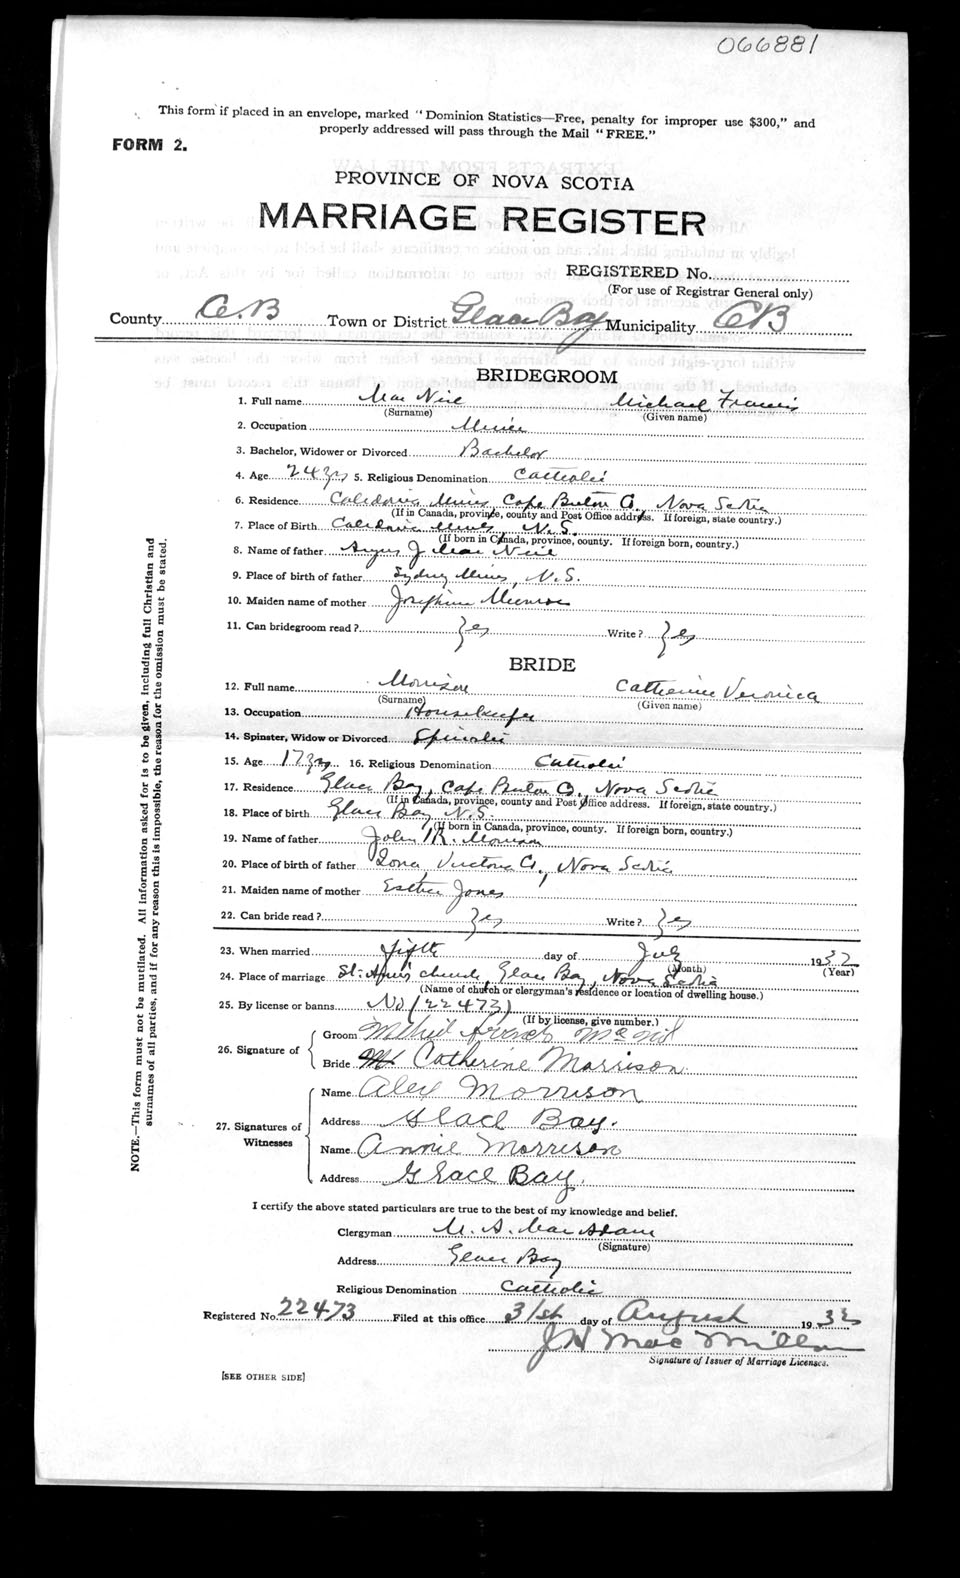 066881
This form if placed in an envelope, marked "Dominion Statistics—Free, penalty for improper use $300," and
properly addressed will pass through the Mail "FREE."
FORM 2.
PROVINCE OF NOVA SCOTIA
MARRIAGE REGISTER
REGISTERED No.
(For use of Registrar General only)
County C.B Town or District Glace Bay Municipality CB
BRIDEGROOM
1. Full name Mac Neil Michael Francis
(Surname) (Given name)
2. Occupation Miner
3. Bachelor, Widower or Divorced Bachelor
4. Age 24 yrs 5. Religious Denomination Catholic
6. Residence Caledonia Mines, Cape Breton Co., Nova Scotia
(If in Canada, province, county and Post Office address. If foreign, state country.)
7. Place of Birth Caledonia Mines, N.S.
(If born in Canada, province, county. If foreign born, country.)
8. Name of father Angus J Mac Neil
9. Place of birth of father Sydney Mines, N.S.
10. Maiden name of mother Josephine Munroe
11. Can bridegroom read? Yes Write? Yes
BRIDE
12. Full name Morrison Catherine Veronica
(Surname) (Given name)
13. Occupation Housekeeper
14. Spinster, Widow or Divorced Spinster
15. Age 17 yrs 16. Religious Denomination Catholic
17. Residence Glace Bay, Cape Breton Co., Nova Scotia
(If in Canada, province, county and Post Office address. If foreign, state country.)
18. Place of birth Glace Bay N.S.
(If born in Canada, province, county. If foreign born, country.)
19. Name of father John R. Morrison
20. Place of birth of father Iona, Victoria Co., Nova Scotia
21. Maiden name of mother Esther Jones
22. Can bride read? Yes Write? Yes
23. When married fifth day of July 1932
(Month) (Year)
24. Place of marriage St. Ann's church, Glace Bay, Nova Scotia
(Name of church or clergyman's residence or location of dwelling house.)
25. By license or banns No (22473)
(If by license, give number.)
26. Signature of
Groom Michael Francis Mc Neil
Bride Catherine Morrison
27. Signatures of Witnesses
Name Alex Morrison
Address Glace Bay.
Name Annie Morrison
Address Glace Bay.
I certify the above stated particulars are true to the best of my knowledge and belief.
Clergyman M. A. MacAdam
(Signature)
Address Glace Bay
Religious Denomination Catholic
Registered No. 22473 Filed at this office 31st day of August 1932
J H MacMillan
Signature of Issuer of Marriage Licenses.
[SEE OTHER SIDE]
NOTE.—This form must not be mutilated. All information asked for is to be given, including full Christian and
surnames of all parties, and if for any reason this is impossible, the reason for the omission must be stated.